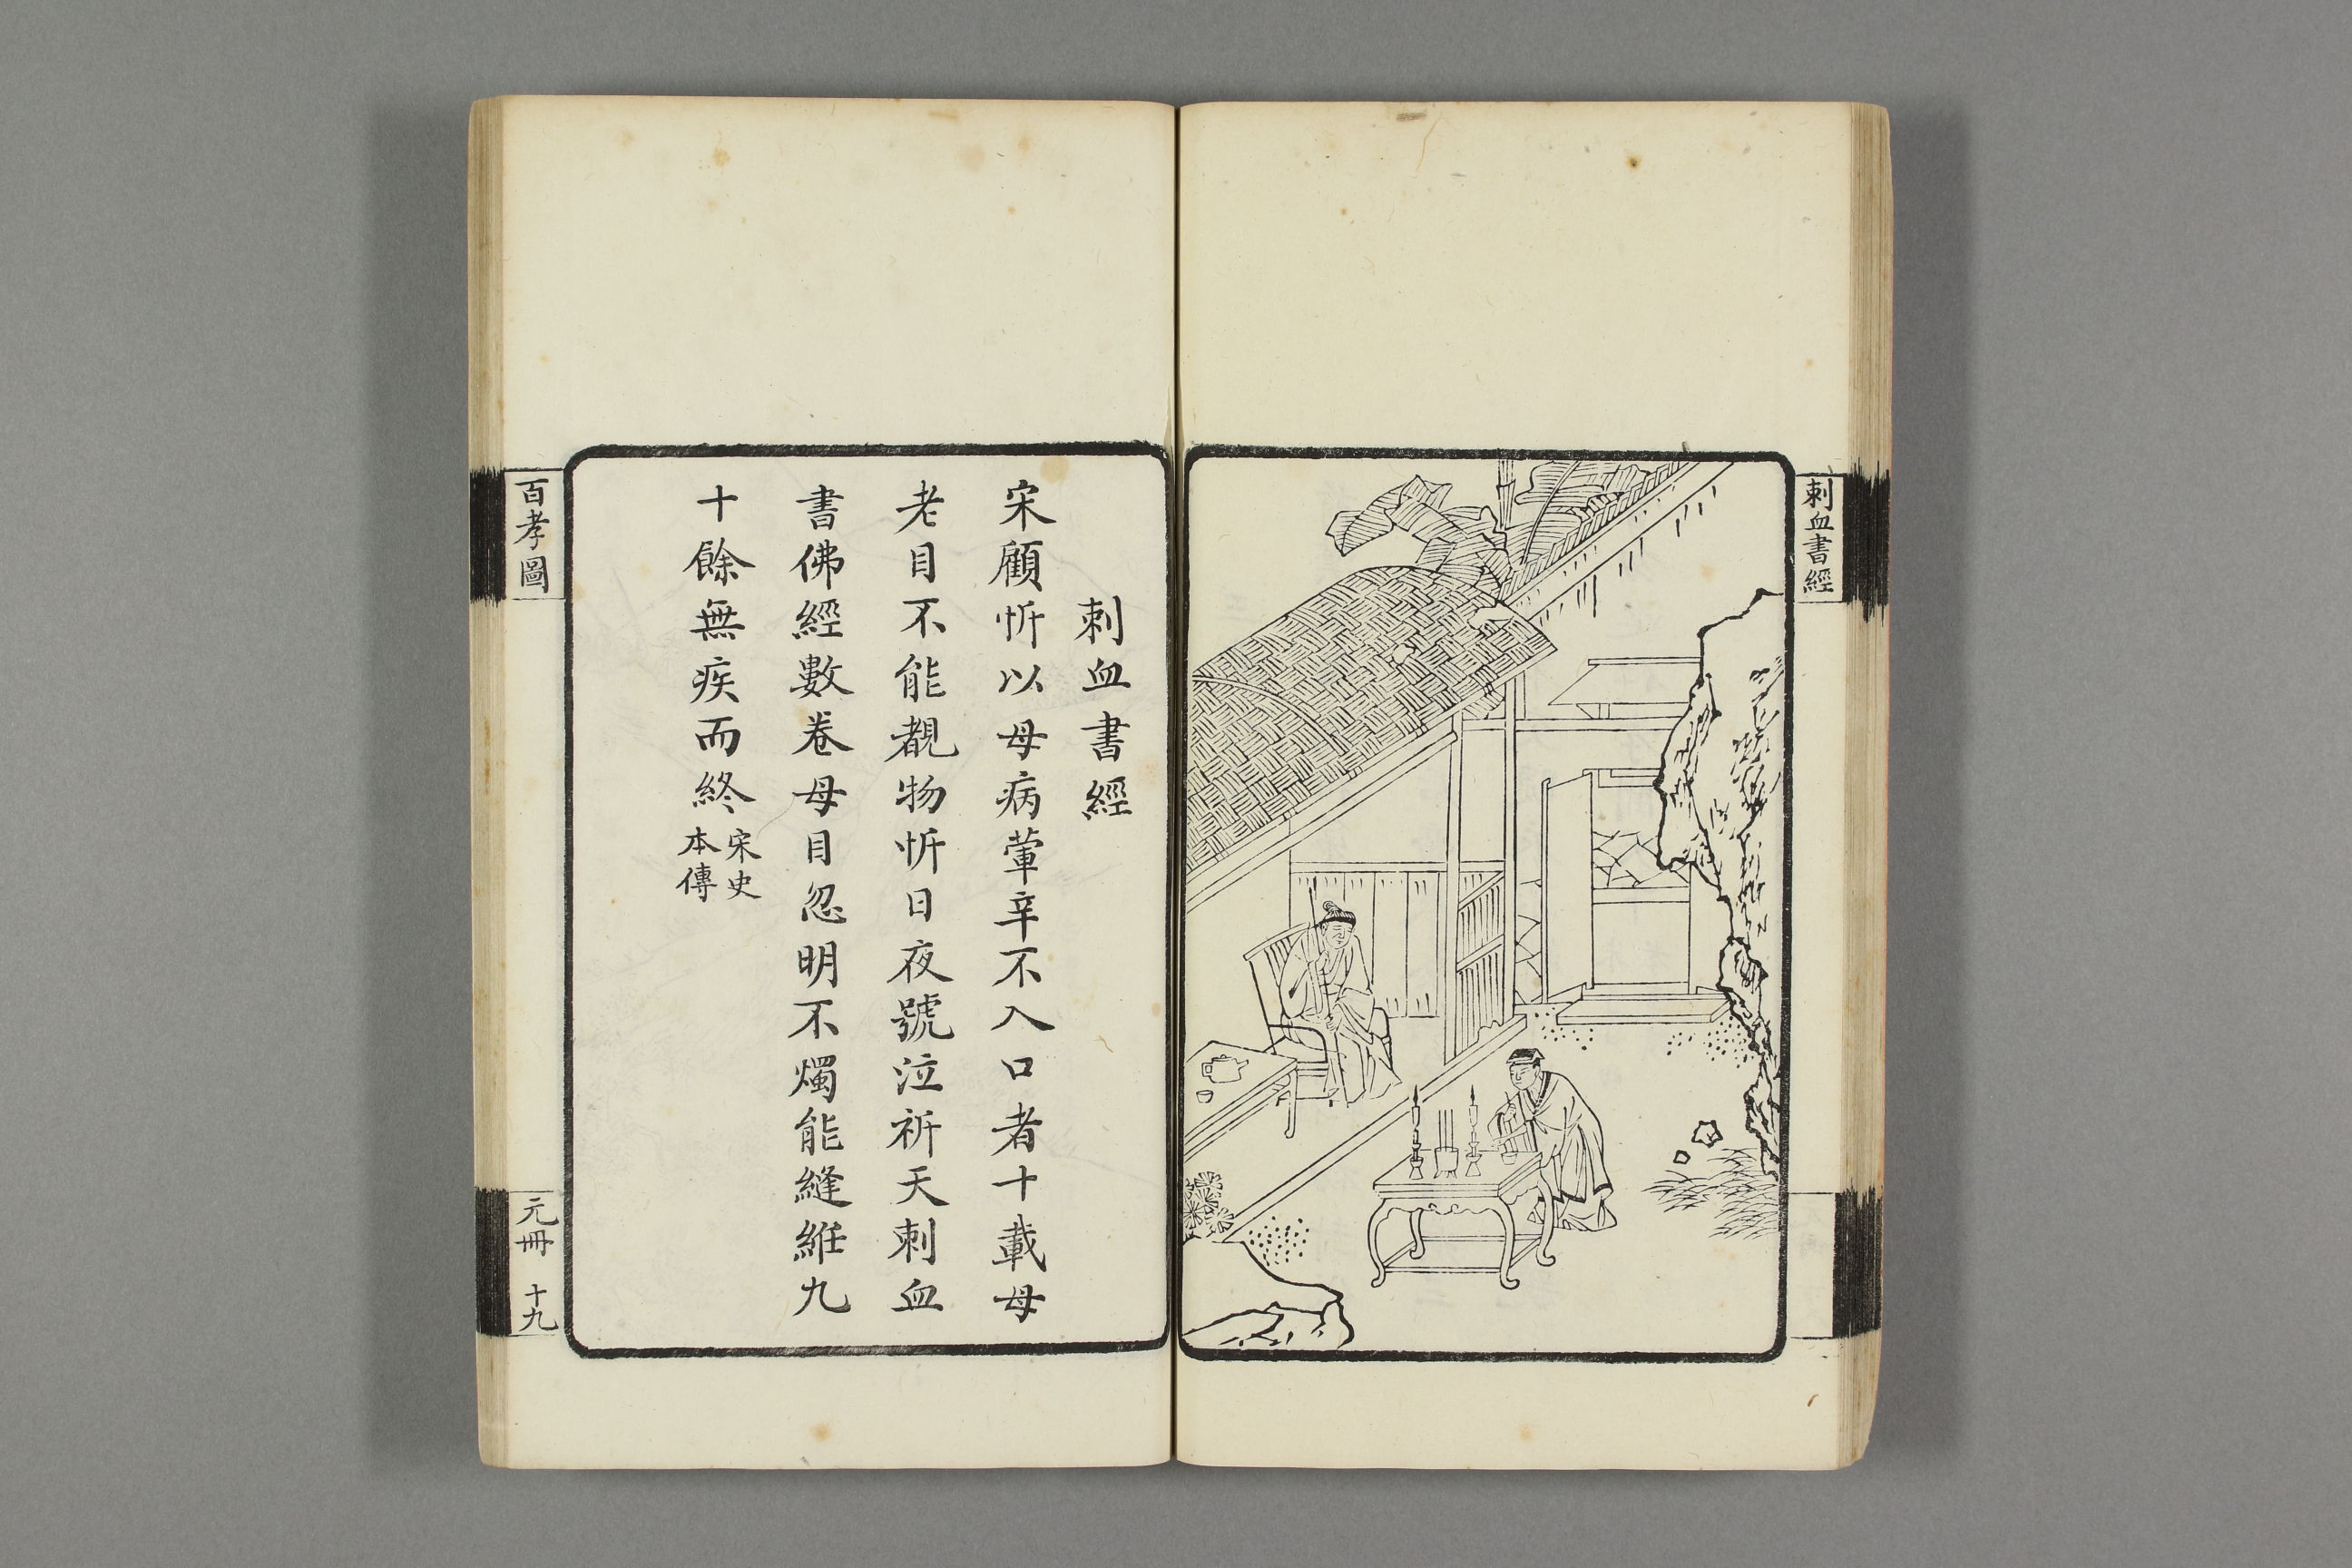 刺血書經
刺血書經
宋顧忻以母病葷辛不入口者十載母
老目不能覩物忻日夜號泣祈天刺血
書佛經數卷母目忽明不燭能縫絍九
十餘無疾而終宋史
本傳
百孝圖
元冊 十九